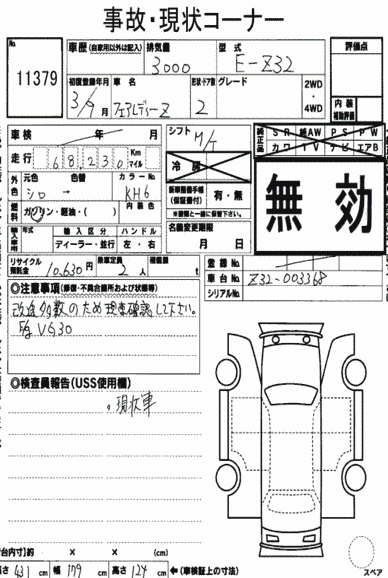 事故・現状コーナー
No. 11379
車歴 (自家用以外は記入) 排気量 3000 型式 E-Z32 評価点
初度登録年月 3/9月 車名 フェアレディーZ 形状・ドア数 2 グレード 2WD・4WD 内装 補助評価
車検 年 月 シフト M/T 純正品 SR 純AW PS PW
走行 68,230 Km マイル 冷房 カワ TV ナビ エアB
外色 元色 シロ → 色替 カラーNo. KH6 新車整備手帳 (保証書付) 有・無 無効
燃料 ガソリン・軽油・( ) 内装色 ※書類と一緒に保管下さい。
輸入車用 年式 輸入区分 ハンドル 名義変更期限
ディーラー・並行 左・右 月 日
リサイクル預託金 10,630円 乗車定員 2人 積載量 t 登録No.
車台No. Z32-003368
シリアルNo.
◎注意事項 (修復・不具合箇所および状態等)
改造多数のため現車確認して下さい。
VG30
◎検査員報告 (USS使用欄)
。現状車
荷台内寸 約 × × (cm)
長さ 431 cm 幅 179 cm 高さ 124 cm ←(車検証上の寸法)
スペア